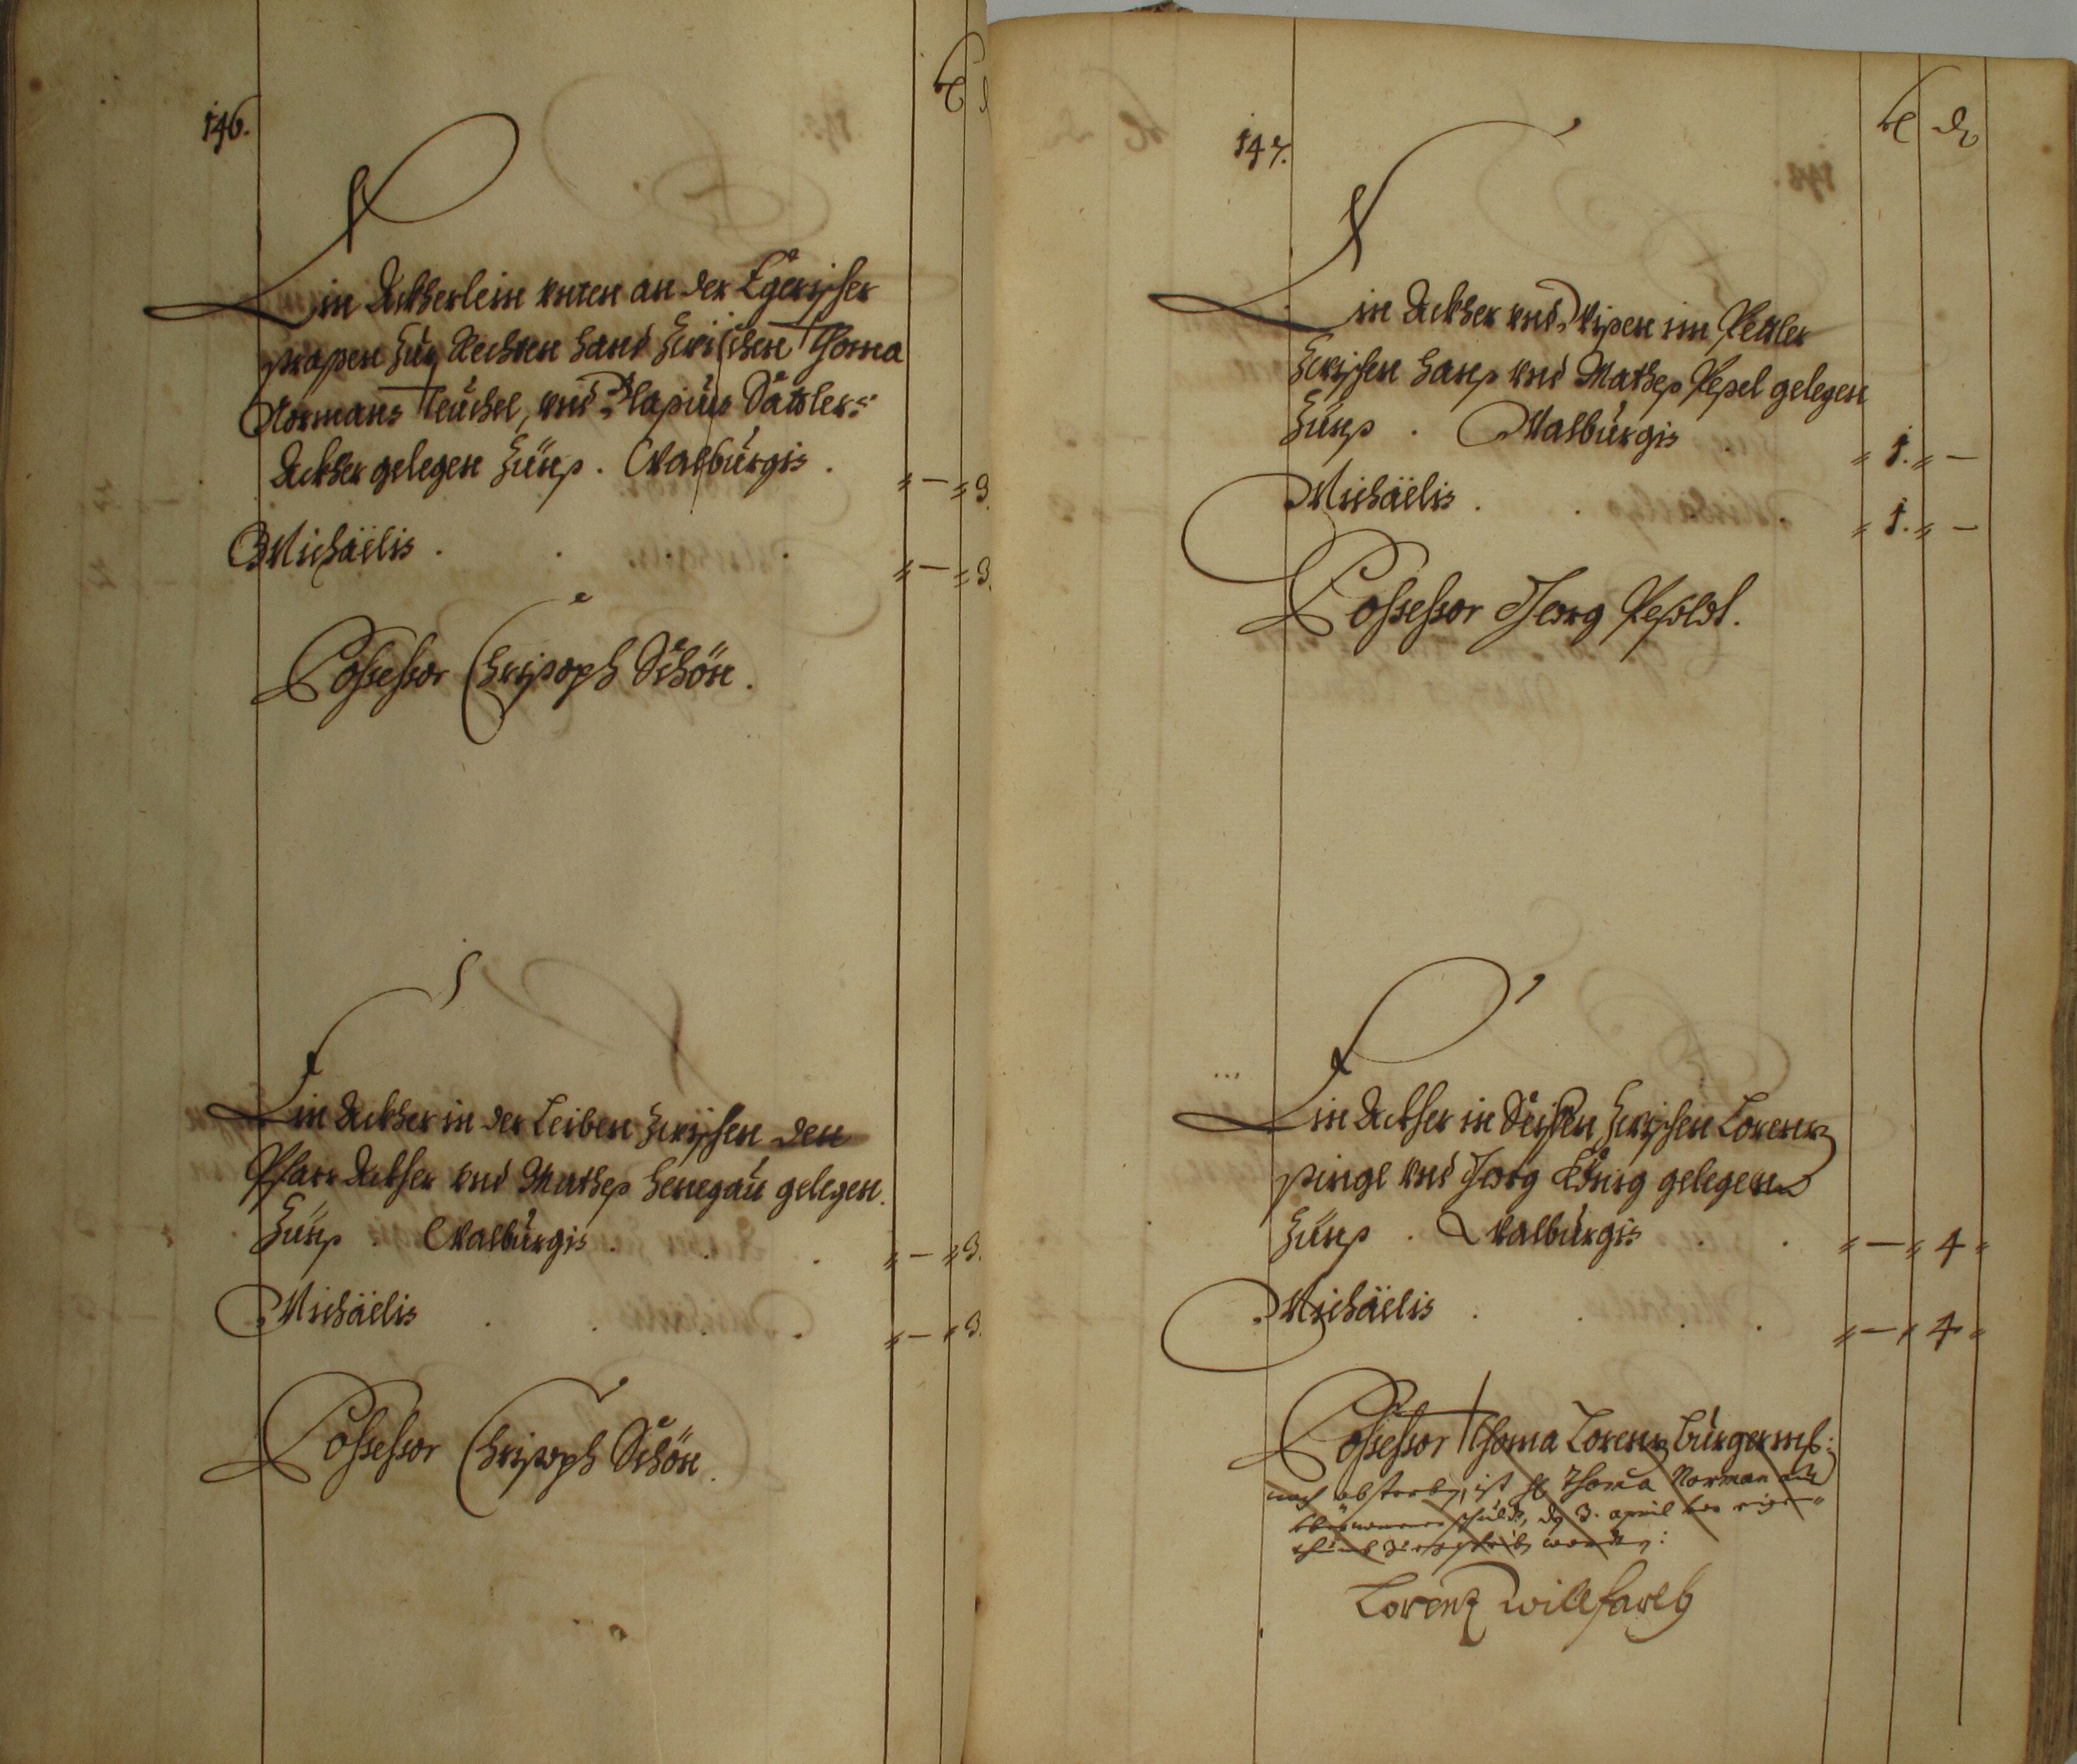 146.
Ein Ackherlein vnten an der Egerischer
strassen zur Rechten hand zwischen Thoma
Normans Teuchel, vnd Blasius Sattlers
Ackher gelegen Zünß . Walburgis . — 3.
Michäelis . . . . — 3.
Possessor Christoph Schön .
Ein Ackher in der Leiben zwischen den
Pfarr Ackher vnd Mathes Henegau gelegen.
Zünß . Walburgis . . . — 3.
Michäelis . . . . — 3.
Possessor Christoph Schön .
147.
Ein Ackher vnd Wisen im Pettler
zwischen Hanß vnd Mathes Pesel gelegen
Zünß . Walburgis . 1. —
Michäelis . . 1. —
Possessor Georg Pesoldt.
Ein Ackher in zwischen Lorentz
vnd Jorg König gelegen
Zünß . Walburgis . . — 4
Michäelis . . . . — 4
Possessor Thoma Lorentz Burgermst:
nach absterben, ist H. Thoma Norman
schuld, den 3. april
worden:
Lorentz